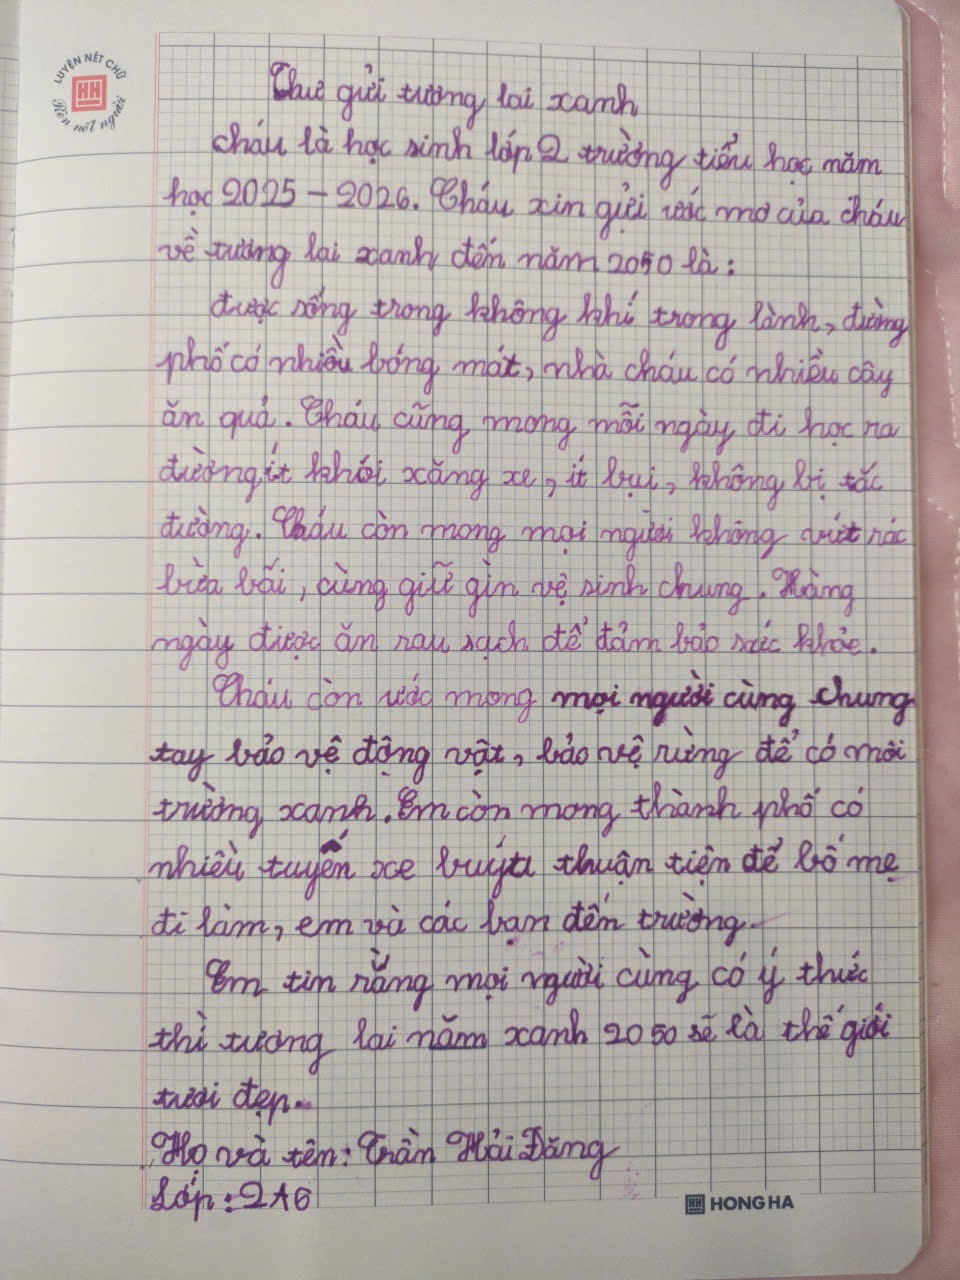 LUYỆN NÉT CHỮ
HH
Rèn nết người
Thư gửi tương lai xanh
Cháu là học sinh lớp 2 trường tiểu học năm
học 2025 - 2026. Cháu xin gửi ước mơ của cháu
về tương lai xanh đến năm 2050 là:
được sống trong không khí trong lành, đường
phố có nhiều bóng mát, nhà cháu có nhiều cây
ăn quả. Cháu cũng mong mỗi ngày đi học ra
đường ít khói xăng xe, ít bụi, không bị tắc
đường. Cháu còn mong mọi người không vứt rác
bừa bãi, cùng giữ gìn vệ sinh chung. Hàng
ngày được ăn rau sạch để đảm bảo sức khỏe.
Cháu còn ước mong mọi người cùng chung
tay bảo vệ động vật, bảo vệ rừng để có môi
trường xanh. Em còn mong thành phố có
nhiều tuyến xe buýt thuận tiện để bố mẹ
đi làm, em và các bạn đến trường.
Em tin rằng mọi người cùng có ý thức
thì tương lai năm xanh 2050 sẽ là thế giới
tươi đẹp.
Họ và tên: Trần Hải Đăng
Lớp: 2A6
HH HONG HA